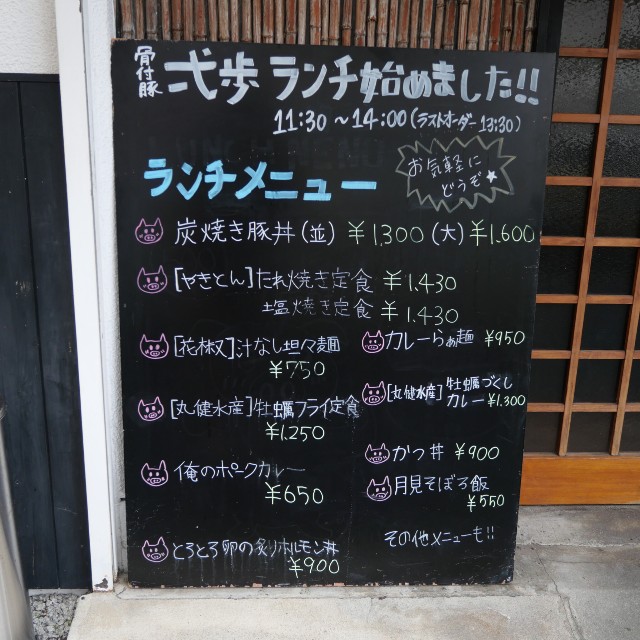 骨付豚 弐歩 ランチ始めました!!
11:30 ～ 14:00 (ラストオーダー 13:30)
ランチメニュー
お気軽に
どうぞ★
炭焼き豚丼 (並) ¥1,300 (大) ¥1,600
[やきとん]たれ焼き定食 ¥1,430
塩焼き定食 ¥1,430
[花椒]汁なし坦々麺
¥750
[丸健水産]牡蠣フライ定食
¥1,250
俺のポークカレー
¥650
とろとろ卵の炙りホルモン丼
¥900
カレーらぁ麺 ¥950
[丸健水産]牡蠣づくし
カレー ¥1,300
かつ丼 ¥900
月見そぼろ飯
¥550
その他メニューも!!